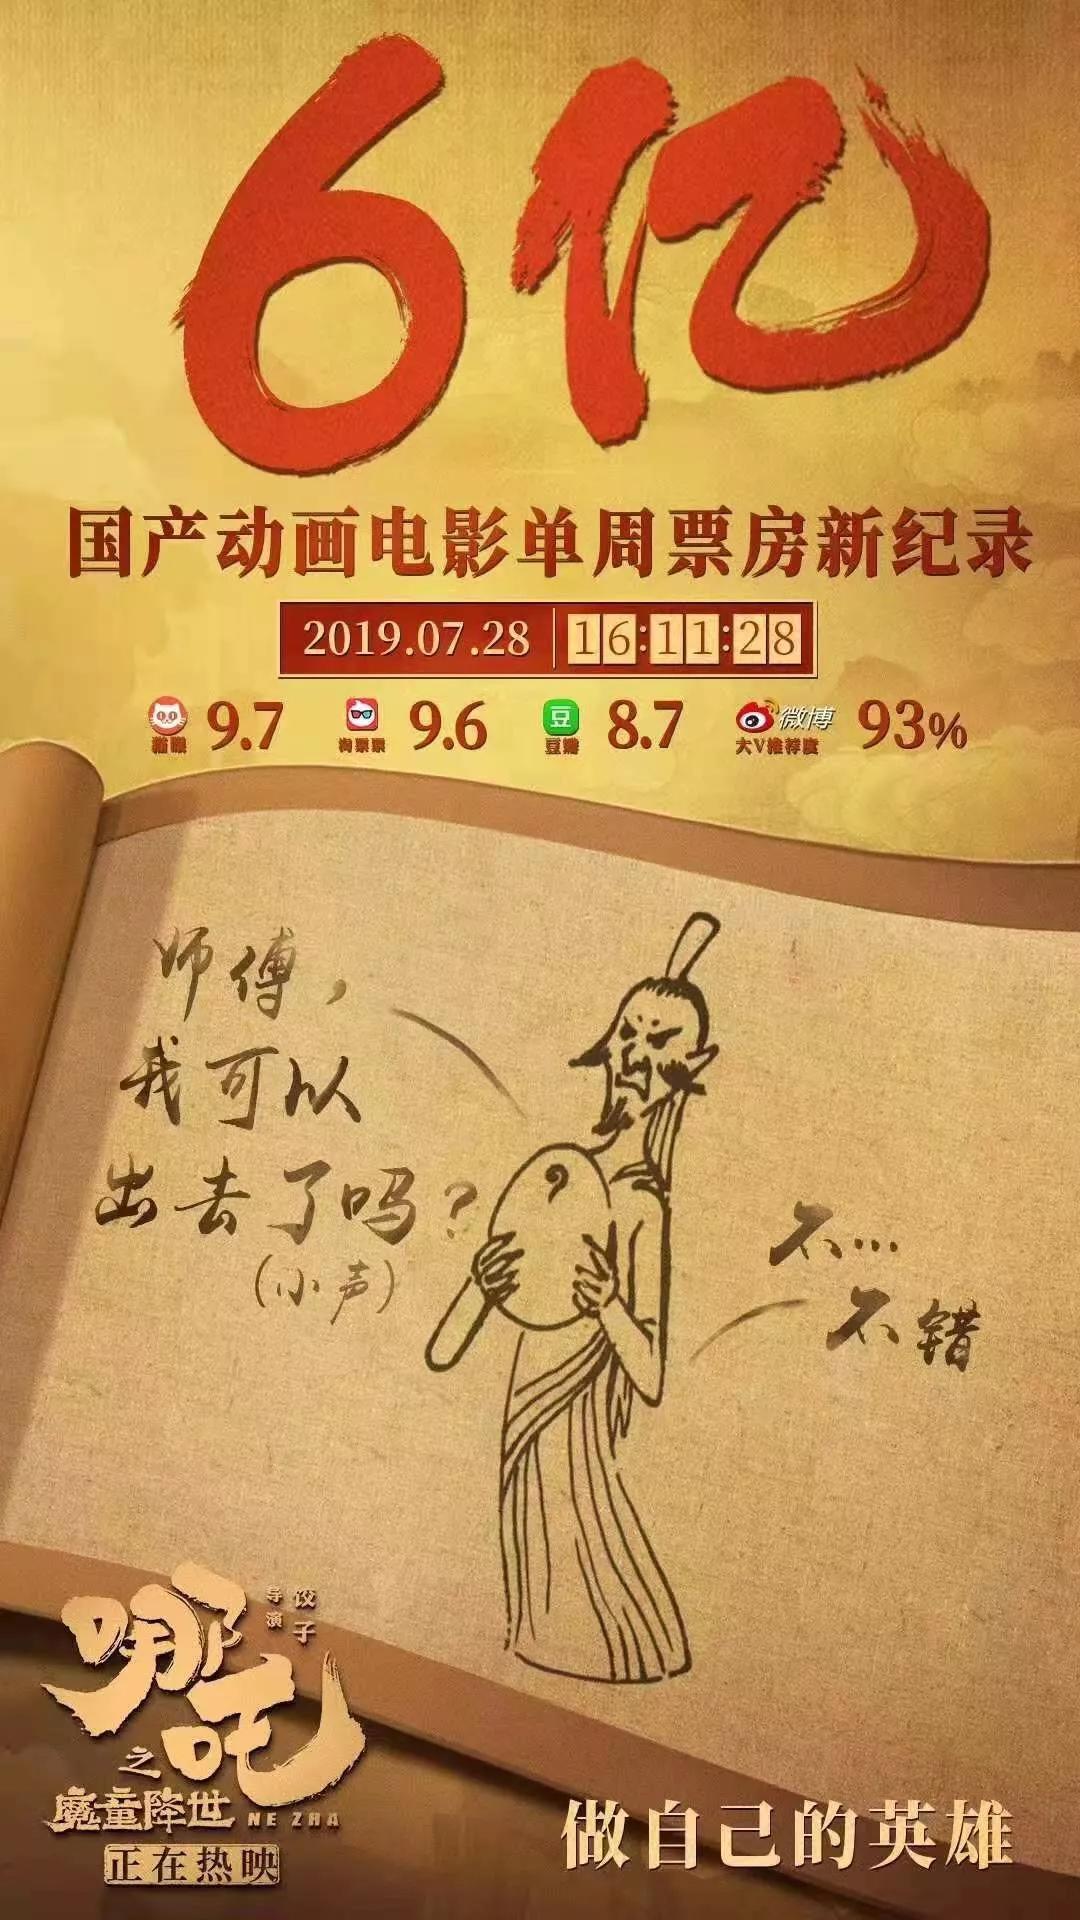 6亿
国产动画电影单周票房新纪录
2019.07.28 16:11:28
猫眼 9.7 淘票票 9.6 豆 豆瓣 8.7 微博 大V推荐度 93%
师傅，
我可以
出去了吗？
（小声）
不…
不错
导演 饺子
哪吒
之
魔童降世 NE ZHA
正在热映
做自己的英雄